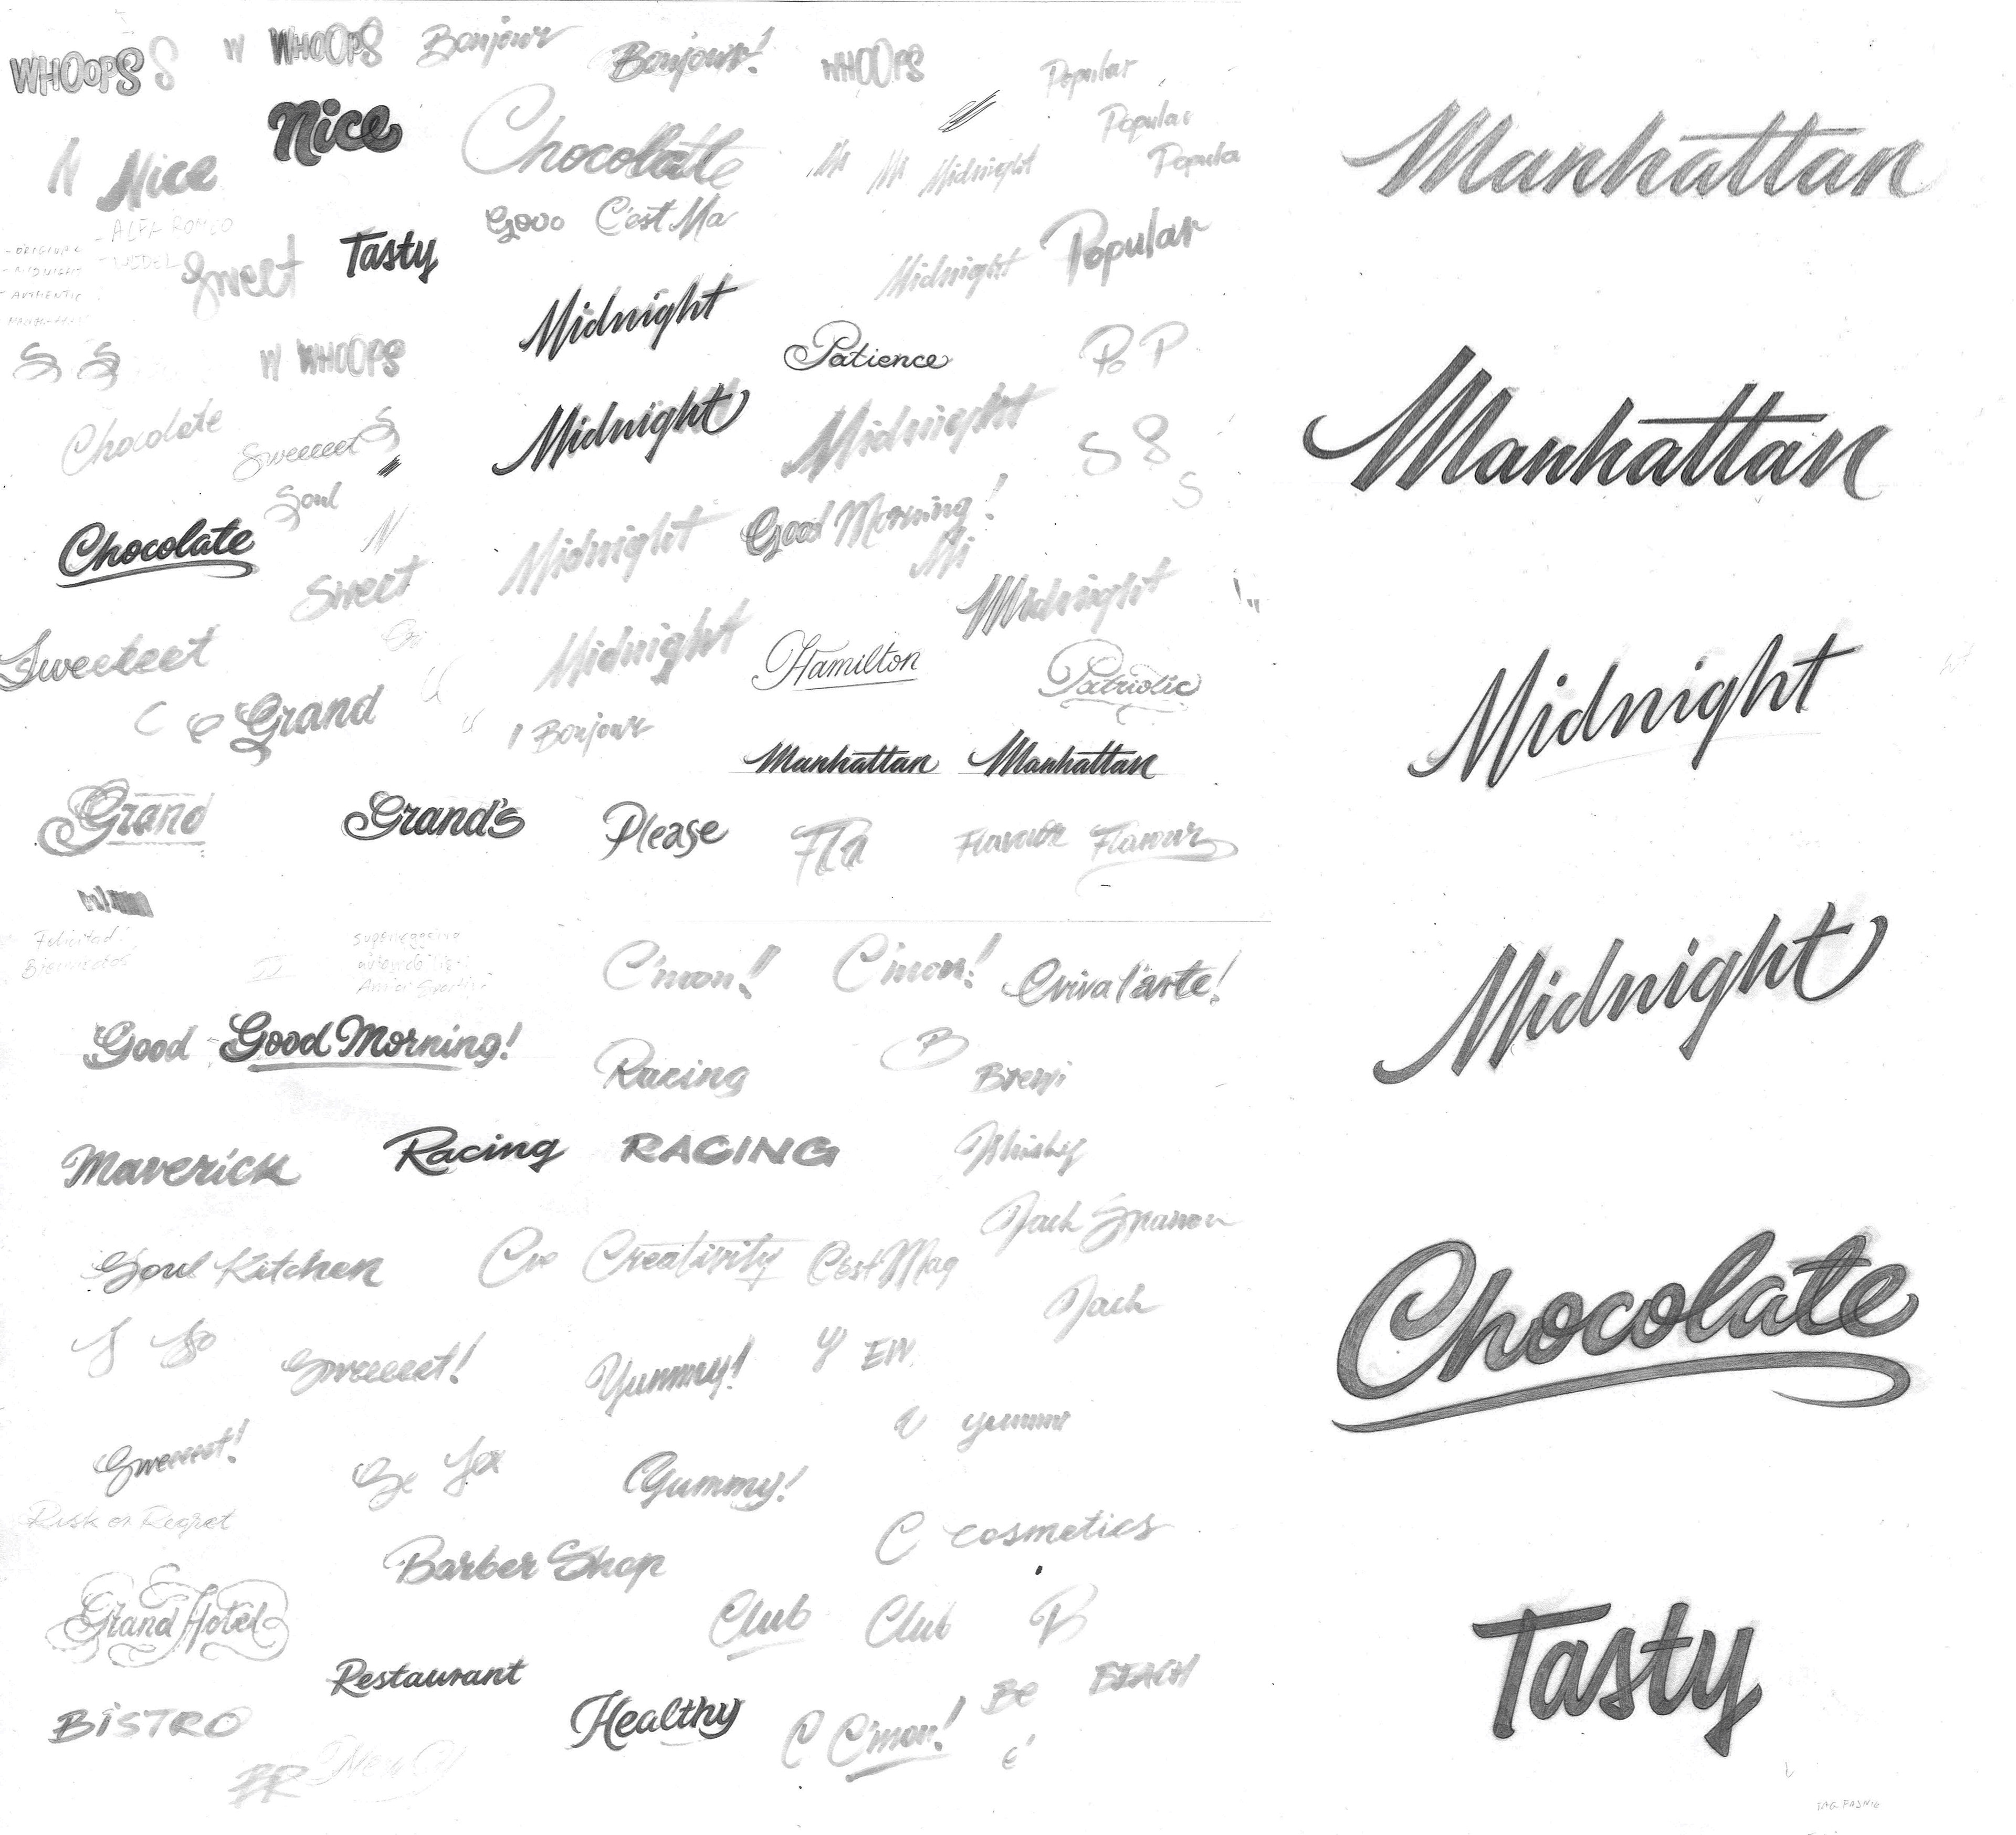 WHOOPS S
W WHOOPS
Bonjour
Bonjour!
WHOOPS
Popular
Popular
Popula
N Nice
Nice
Chocolatte
Mi Mi Midnight
Manhattan
- ALFA ROMEO
- ORIGINAL
- MIDNIGHT
- AUTHENTIC
Sweet
Tasty
Good C'est Ma
Midnight
Popular
Midnight
S S
W WHOOPS
Patience
Po P
Chocolate
Sweeeeet S
Midnight
Midnight
S 8
S
Manhattan
Soul
N
Chocolate
Sweet
Midnight
Good Morning!
Mi
Midnight
Sweeteet
Midnight
Hamilton
Patriotic
Midnight
C G Grand
Bonjour
Manhattan
Manhattan
Grand
Grand's
Please
Fla
Flavour
Flavour
Felicitad!
Bienvenidos
C'mon!!
C'mon!
Evviva l'arte!
Midnight
Good
Good Morning!
Racing
B
Maverick
Racing
RACING
Whisky
Jack Sparrow
Soul Kitchen
Cre Creativity
C'est Mag
Jack
Chocolate
S So
Sweeeeet!
Yummy!
Y EW
Sweeeet!
Se Sex
Yummy!
Y yummy
Risk or Regret
Barber Shop
C cosmetics
Grand Hotel
Club
Club
B
Tasty
Restaurant
BISTRO
Healthy
C C'mon!
Be
BEACH
e'
BR
New Cy